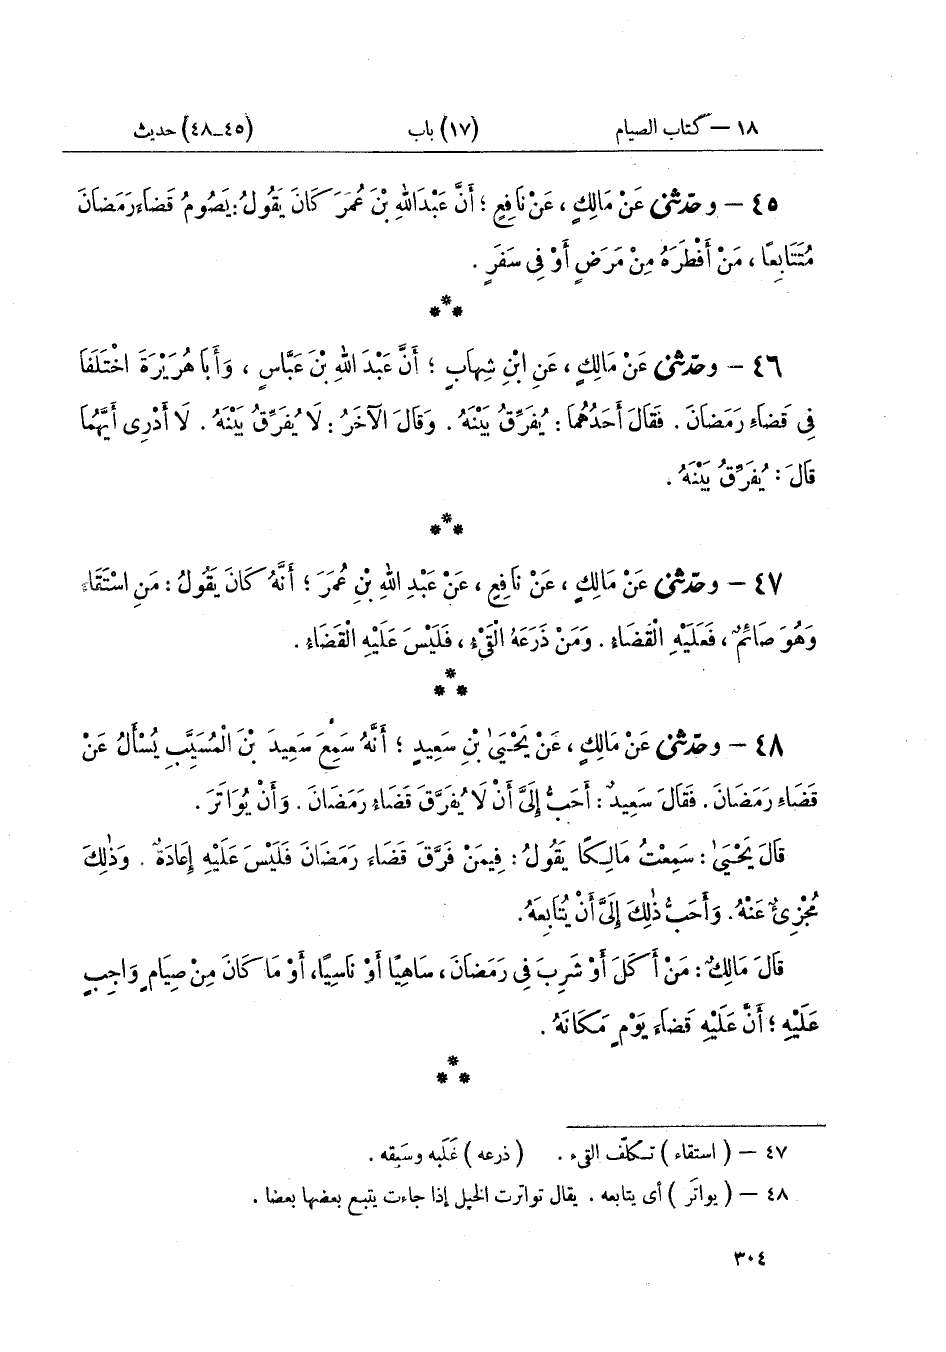 ١٨ – كتاب الصيام (١٧) باب (٤٥–٤٨) حديث
٤٥ – وحدّثنى عَنْ مَالِكٍ، عَنْ نَافِعٍ؛ أَنَّ عَبْدَاللهِ بْنَ عُمَرَ كَانَ يَقُولُ: يَصُومُ قَضَاءَ رَمَضَانَ
مُتَتَابِعًا، مَنْ أَفْطَرَهُ مِنْ مَرَضٍ أَوْ فِى سَفَرٍ.
***
٤٦ – وحدّثنى عَنْ مَالِكٍ، عَنِ ابْنِ شِهَابٍ؛ أَنَّ عَبْدَ اللهِ بْنَ عَبَّاسٍ، وَأَبَا هُرَيْرَةَ اخْتَلَفَا
فِى قَضَاءِ رَمَضَانَ. فَقَالَ أَحَدُهُمَا: يُفَرِّقُ بَيْنَهُ. وَقَالَ الْآخَرُ: لَا يُفَرِّقُ بَيْنَهُ. لَا أَدْرِى أَيَّهُمَا
قَالَ: يُفَرِّقُ بَيْنَهُ.
***
٤٧ – وحدّثنى عَنْ مَالِكٍ، عَنْ نَافِعٍ، عَنْ عَبْدِ اللهِ بْنِ عُمَرَ؛ أَنَّهُ كَانَ يَقُولُ: مَنِ اسْتَقَاءَ
وَهُوَ صَائِمٌ، فَعَلَيْهِ الْقَضَاءُ. وَمَنْ ذَرَعَهُ الْقَىْءُ، فَلَيْسَ عَلَيْهِ الْقَضَاءُ.
***
٤٨ – وحدّثنى عَنْ مَالِكٍ، عَنْ يَحْيَىٰ بْنِ سَعِيدٍ؛ أَنَّهُ سَمِعَ سَعِيدَ بْنَ الْمُسَيَّبِ يُسْأَلُ عَنْ
قَضَاءِ رَمَضَانَ. فَقَالَ سَعِيدٌ: أَحَبُّ إِلَىَّ أَنْ لَا يُفَرَّقَ قَضَاءُ رَمَضَانَ. وَأَنْ يُوَاتَرَ.
قَالَ يَحْيَىٰ: سَمِعْتُ مَالِكًا يَقُولُ: فِيمَنْ فَرَّقَ قَضَاءَ رَمَضَانَ فَلَيْسَ عَلَيْهِ إِعَادَةٌ. وَذٰلِكَ
مُجْزِئٌ عَنْهُ. وَأَحَبُّ ذٰلِكَ إِلَىَّ أَنْ يُتَابِعَهُ.
قَالَ مَالِكٌ: مَنْ أَكَلَ أَوْ شَرِبَ فِى رَمَضَانَ، سَاهِيًا أَوْ نَاسِيًا، أَوْ مَا كَانَ مِنْ صِيَامٍ وَاجِبٍ
عَلَيْهِ؛ أَنَّ عَلَيْهِ قَضَاءَ يَوْمٍ مَكَانَهُ.
***
٤٧ – (استقاء) تكلّف القىء. (ذرعه) غَلَبه وسَبَقه.
٤٨ – (يواتَر) أى يتابعه. يقال تواترت الخيل إذا جاءت يتبع بعضها بعضا.
٣٠٤